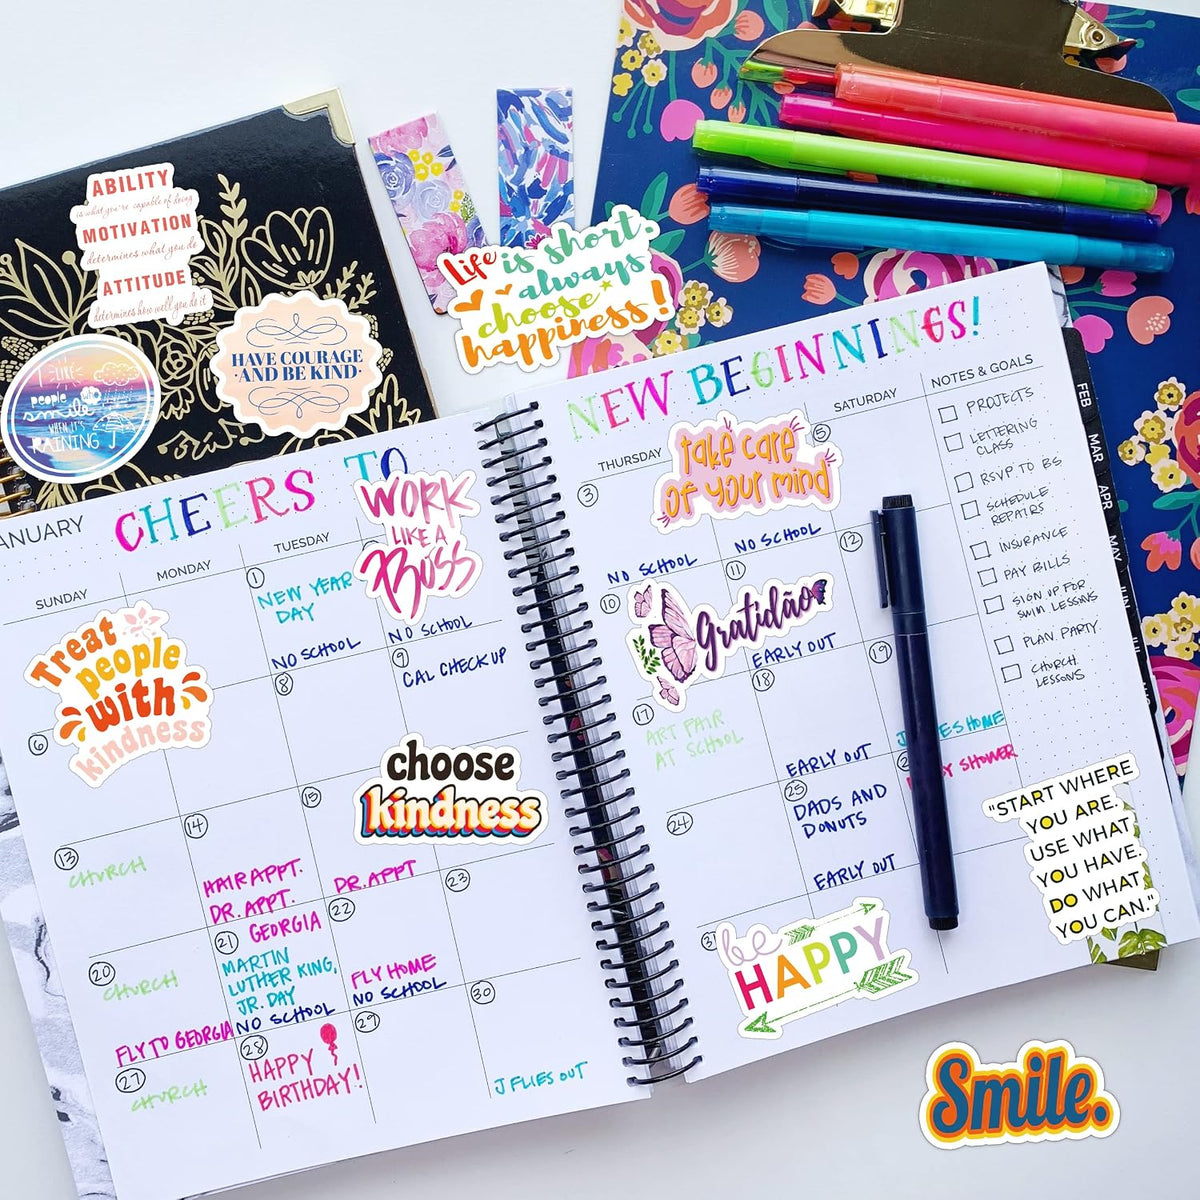 ABILITY
is what you're capable of doing
MOTIVATION
determines what you do
ATTITUDE
determines how well you do it
HAVE COURAGE
·AND BE KIND·
I LIKE
people who
smile
WHEN IT'S
RAINING
Life is short.
always
choose
happiness!
ANUARY
CHEERS TO
WORK
LIKE A
BOSS
SUNDAY
MONDAY
TUESDAY
Treat
people
with
kindness
1
NEW YEAR
DAY
NO SCHOOL
NO SCHOOL
6
8
9
CAL CHECK UP
choose
kindness
13
CHURCH
14
HAIR APPT.
DR. APPT.
15
DR. APPT
20
CHURCH
FLY TO GEORGIA
21
GEORGIA
MARTIN
LUTHER KING,
JR. DAY
NO SCHOOL
22
FLY HOME
NO SCHOOL
23
27
CHURCH
28
HAPPY
BIRTHDAY!
29
30
J FLIES OUT
NEW BEGINNINGS!
THURSDAY
SATURDAY
NOTES & GOALS
take care
of your mind
3
NO SCHOOL
NO SCHOOL
5
10
Gratidão
11
EARLY OUT
12
17
ART FAIR
AT SCHOOL
18
EARLY OUT
19
HOME
SHOWER
24
25
DADS AND
DONUTS
EARLY OUT
31
be
HAPPY
PROJECTS
LETTERING
CLASS
RSVP TO BS
SCHEDULE
REPAIRS
INSURANCE
PAY BILLS
SIGN UP FOR
SWIM LESSONS
PLAN PARTY
CHURCH
LESSONS
FEB
MAR
APR
MAY
JUN
"START WHERE
YOU ARE.
USE WHAT
YOU HAVE.
DO WHAT
YOU CAN."
Smile.